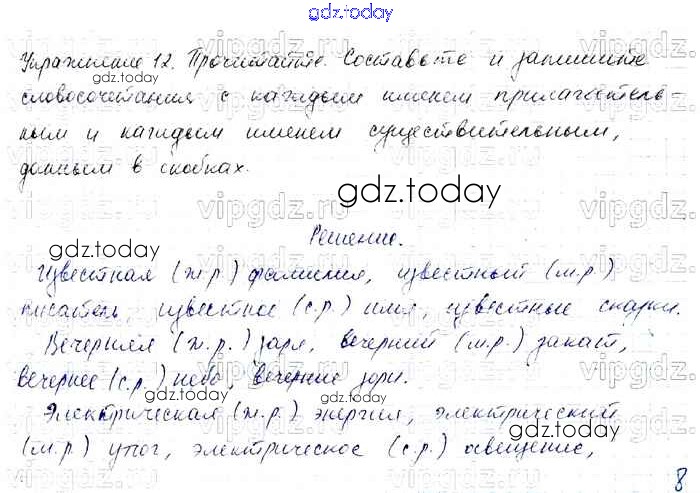 gdz.today
Упражнение 12. Прочитайте. Составьте и запишите
gdz.today
словосочетания с каждым именем прилагатель-
ным и каждым именем существительным,
данным в скобках.
gdz.today
Решение.
gdz.today
Известная (ж.р.) фамилия, известный (м.р.)
писатель, известное (с.р.) имя, известные сказки.
Вечерняя (ж.р.) заря, вечерний (м.р.) закат,
вечернее (с.р.) небо, вечерние зори.
gdz.today
Электрическая (ж.р.) энергия, электрический
(м.р.) утюг, электрическое (с.р.) освещение,
8